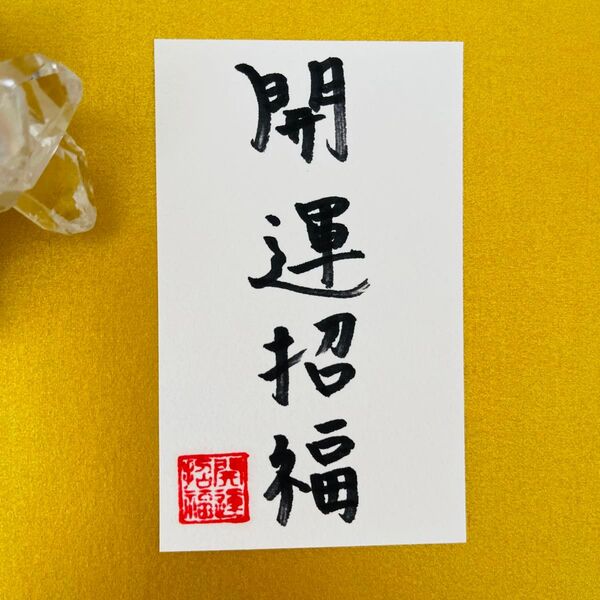 開運招福
開運
招福